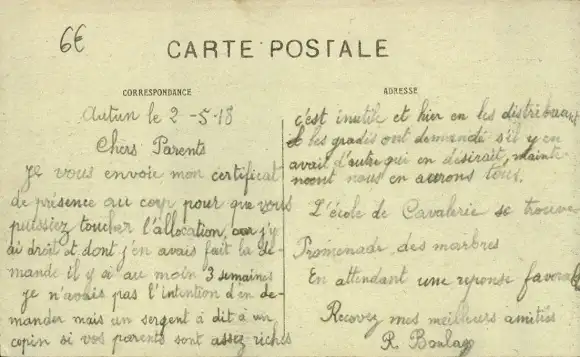 6€
CARTE POSTALE
CORRESPONDANCE
Autun le 2-5-18
Chers Parents
Je vous envoie mon certificat
de présence au corp pour que vous
puissiez toucher l'allocation, car j'y
ai droit et dont j'en avais fait la de-
mande il y a au moin 3 semaines
je n'avais pas l'intention d'en de-
mander mais un sergent à dit à un
copin si vos parents sont assez riches
ADRESSE
c'est inutile et hier en les distribuant
les gradés ont demandé s'il y en
avait d'autre qui en désirait, mainte-
noont nous en aurons tous.
L'école de Cavalerie se trouve
Promenade des marbres
En attendant une reponse favorable
Recevez mes meilleurs amitiés
R.